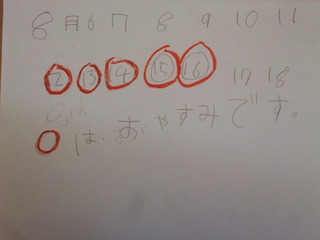 8月6 7 8 9 10 11
12 13 14 15 16 17 18
は、おやすみです。